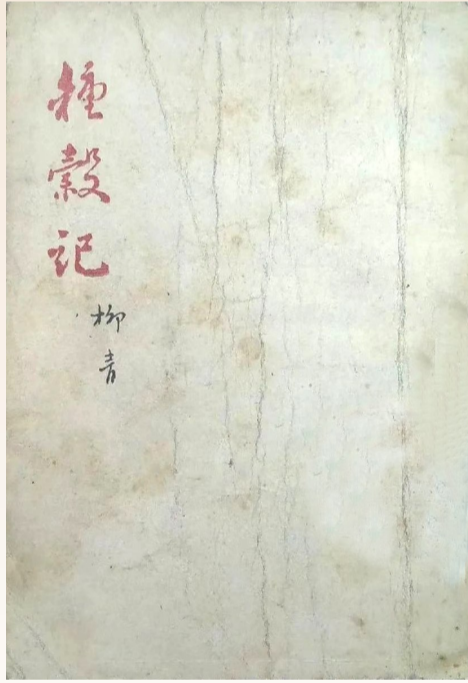 種穀記
柳青